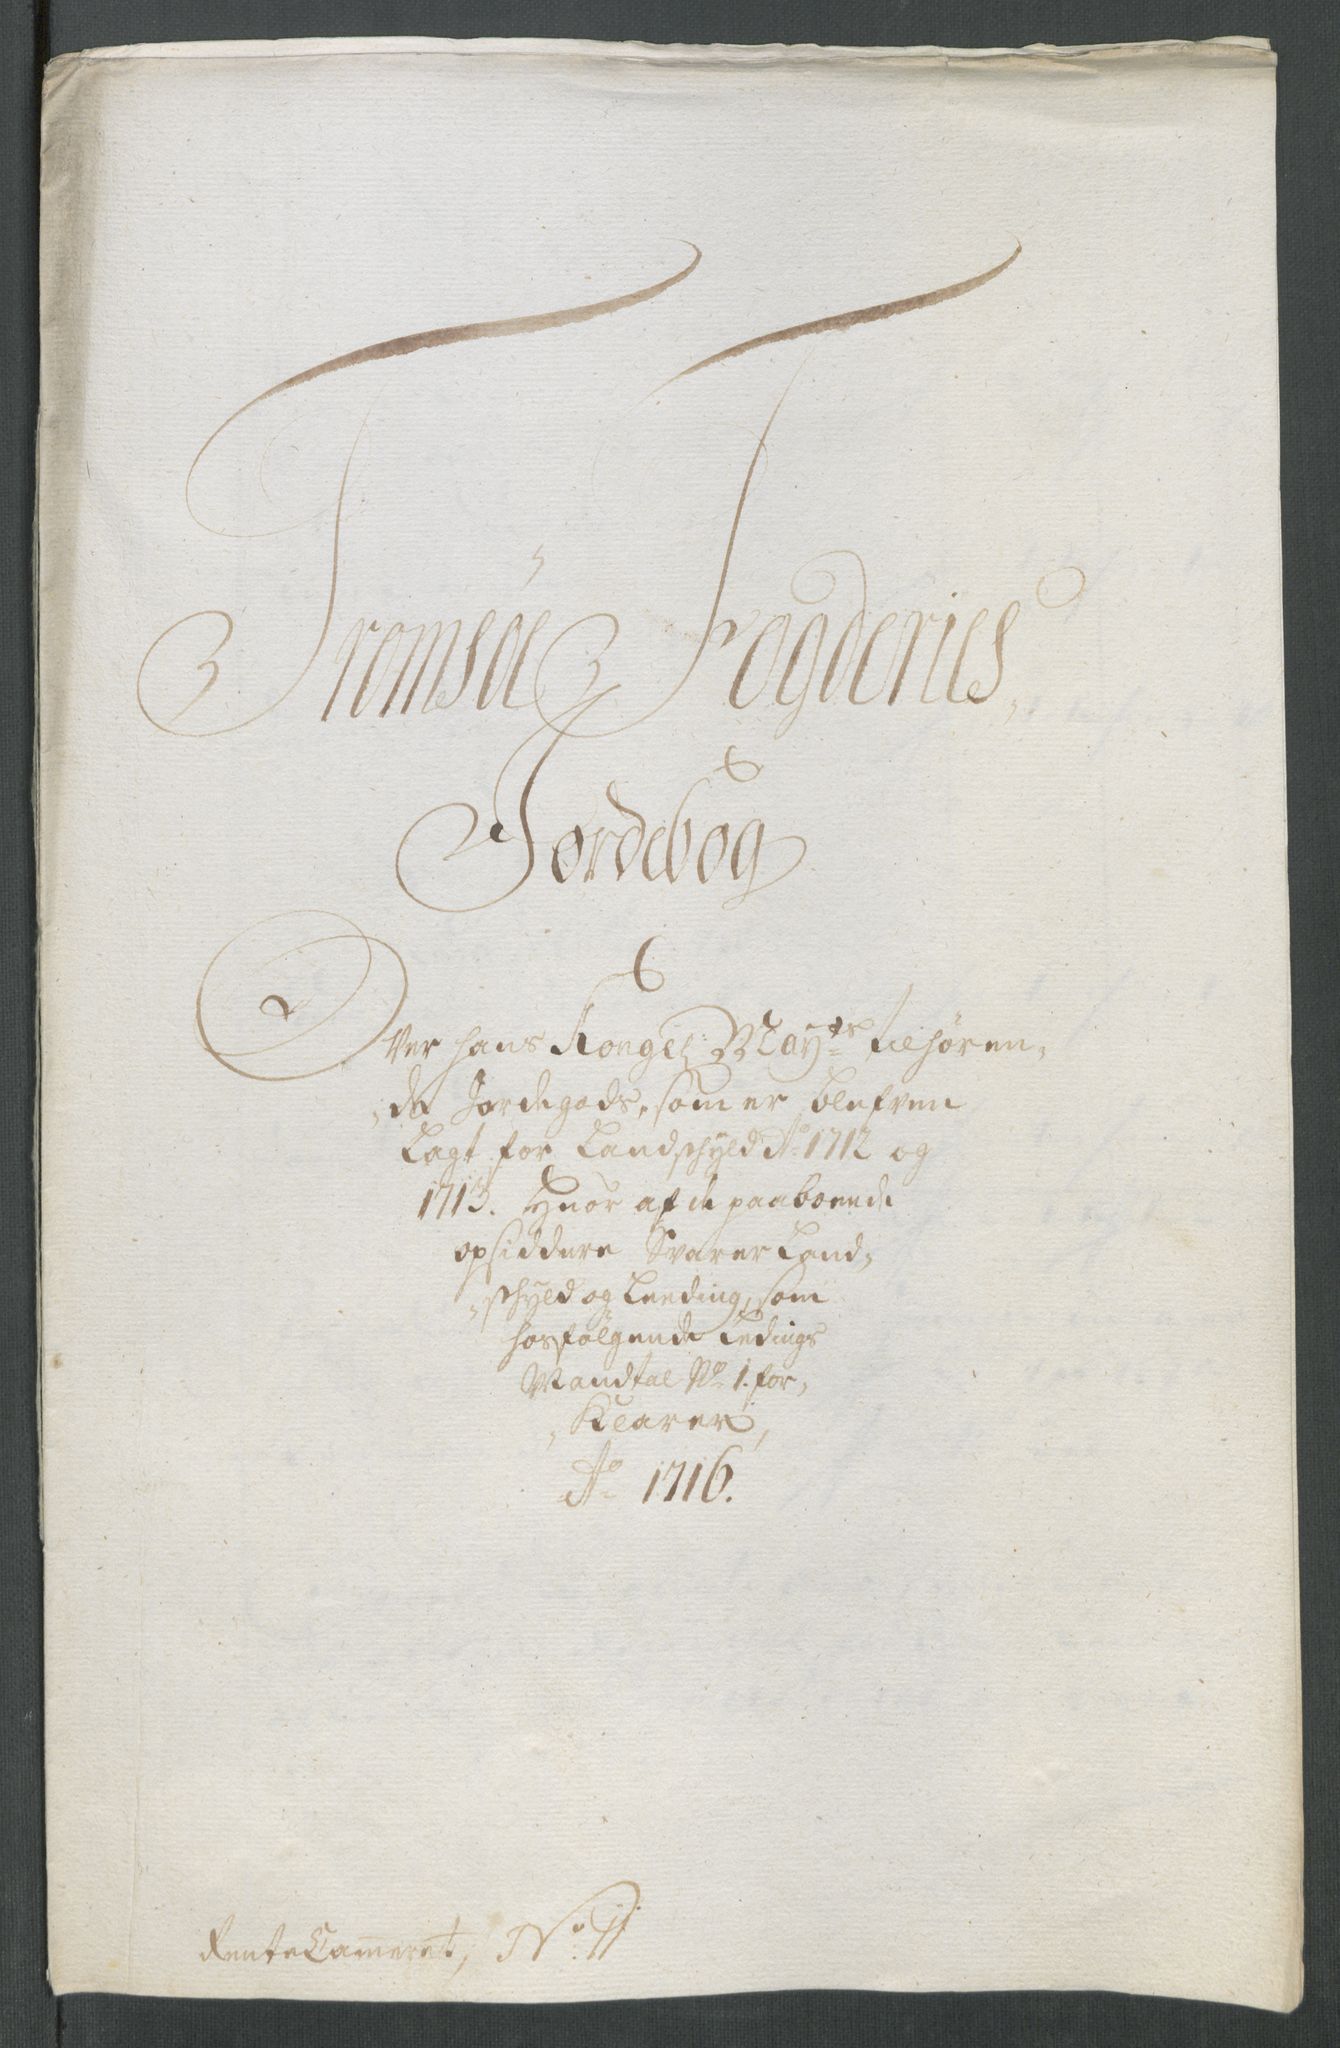 Tromsøe Fogderies
Jordebog
Over hans Kongel: Mayts tilhøren,
,de Jordegods, som er blefven
Lagt for Landschyld Ao 1712 og
1713. Huor af de paaboende
opsiddere Svarer Land,
,schyld og Leeding, som
hosfølgende Ledings
Mandtal No 1. for,
,klarer,
Ao 1716.
RenteCammeret, No: 11